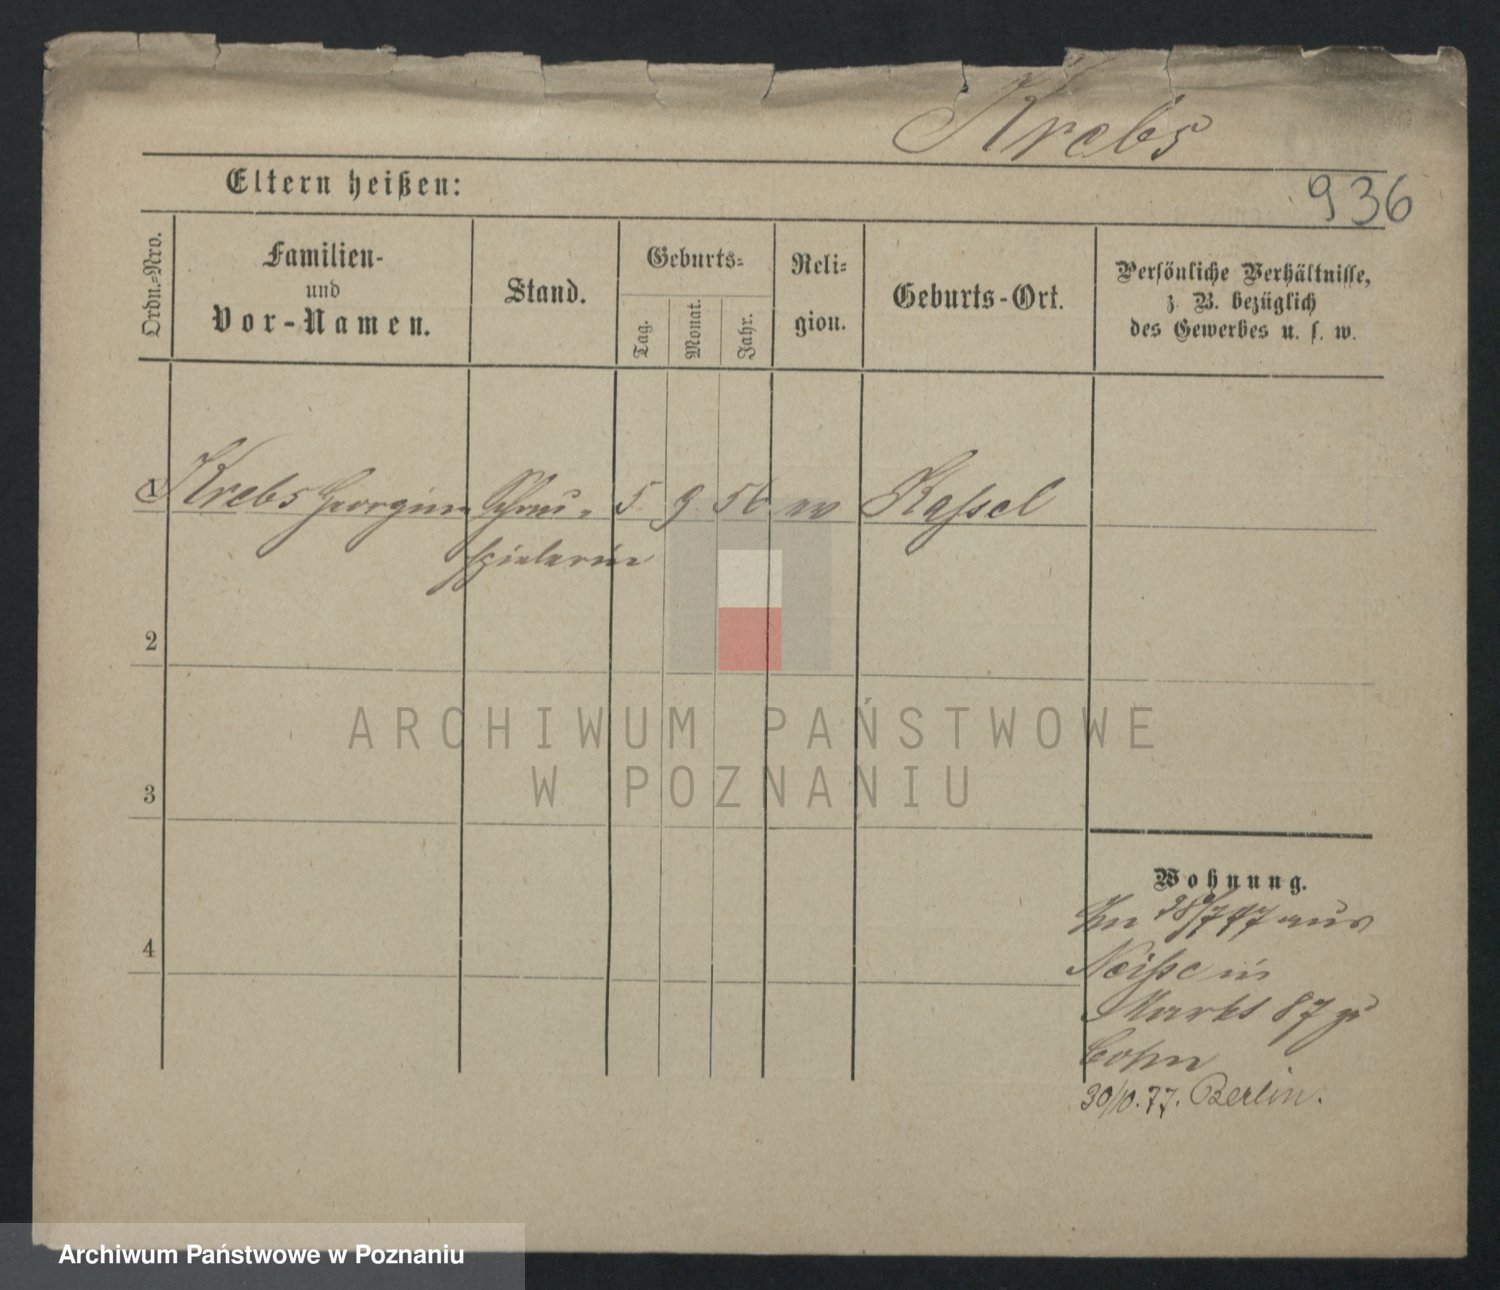 Krebs
Eltern heißen:
936
Ordn.-Nro.
Familien-
und
Vor-Namen.
Stand.
Geburts-
Tag.
Monat.
Jahr.
Reli-
gion.
Geburts-Ort.
Persönliche Verhältnisse,
z. B. bezüglich
des Gewerbes u. s. w.
1 Krebs Georgine Schau- 5 9 56 Kassel
spielerin
2
3
4
ARCHIWUM PAŃSTWOWE
W POZNANIU
Wohnung.
aus
Neisse in
Markt 87
Cohn
30/10.77. Berlin.
Archiwum Państwowe w Poznaniu